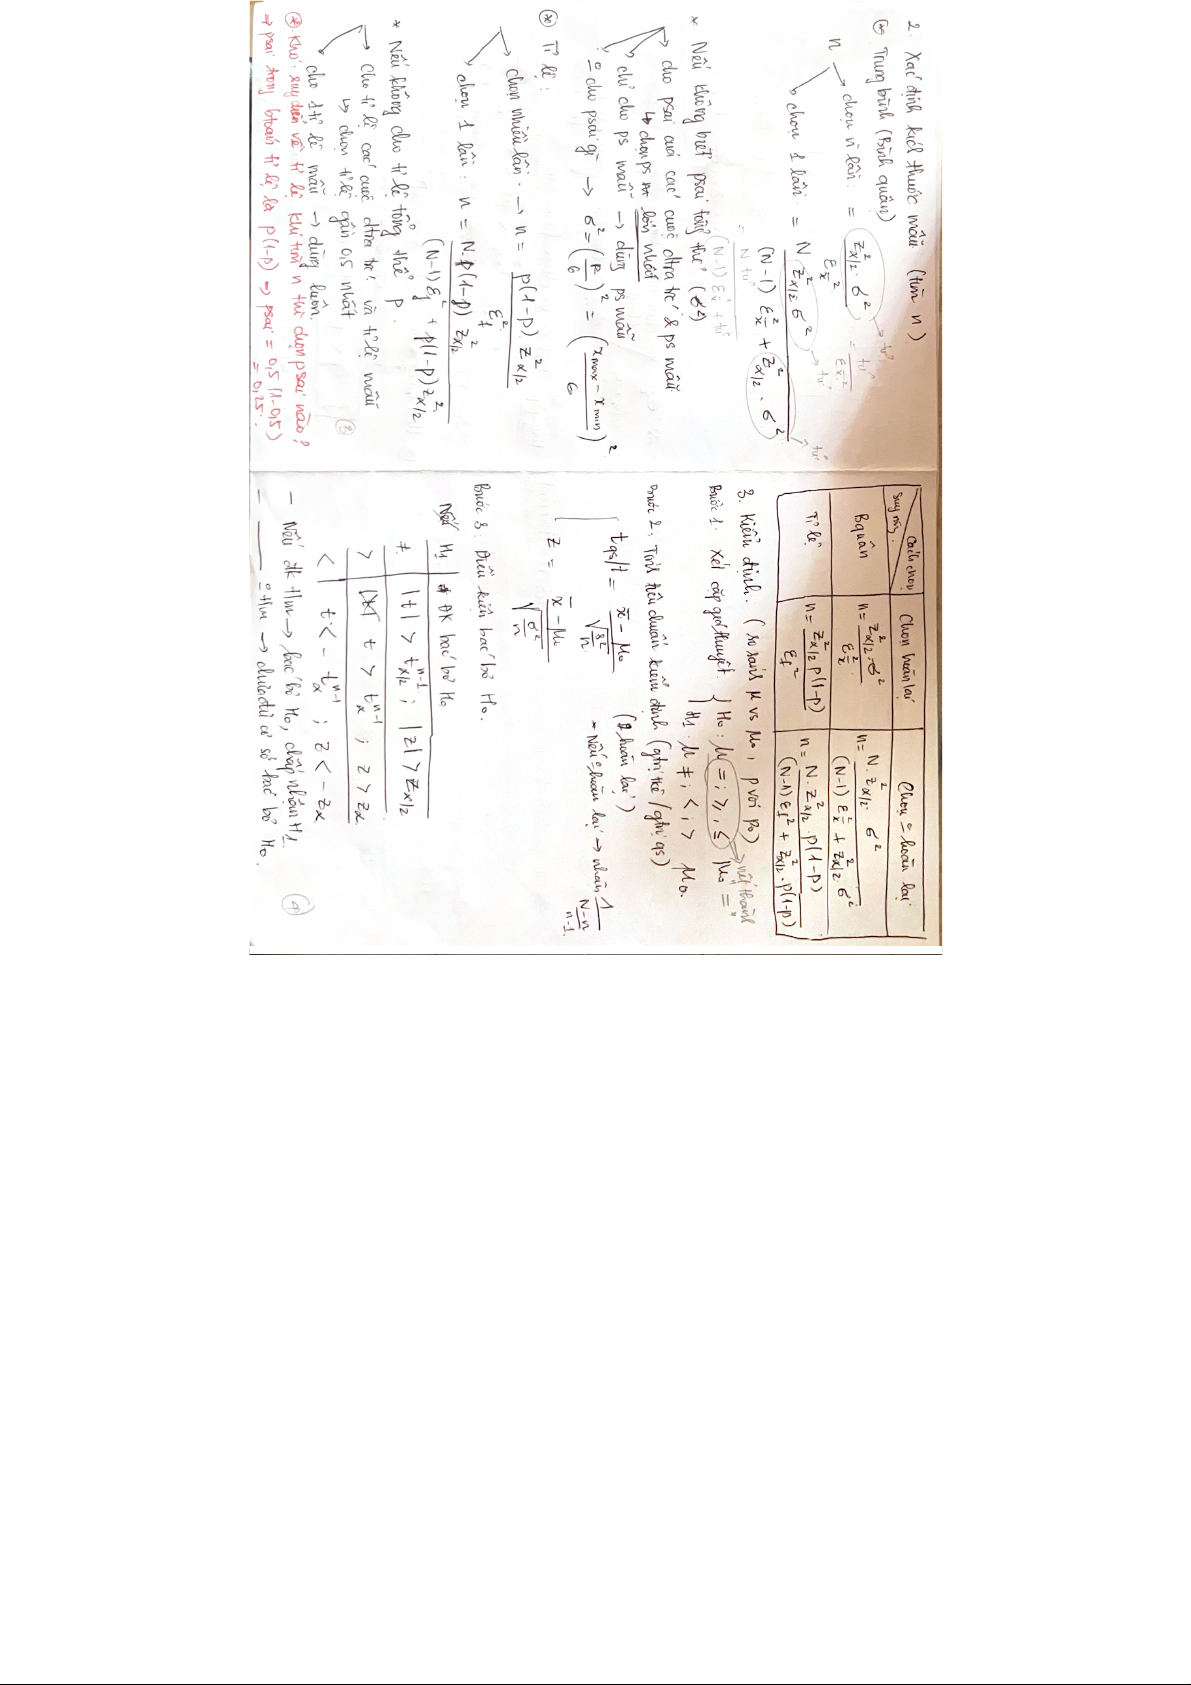 2. Xác định kích thước mẫu (tìm n).
⊛ Trung bình (Bình quân)
n
→ chọn n lần. = Z²α/2 . σ² / ε²x̄ → tử = tử / ε²x̄
→ chọn 1 lần = N Z²α/2 σ² / (N-1) ε²x̄ + Z²α/2 . σ² → tử → tử
= N tử / (N-1) ε²x̄ + tử
* Nếu không biết psai tổng thể (σ²)
→ cho psai của các cuộc đtra trc & ps mẫu
↳ chọn ps lớn nhất
→ chỉ cho ps mẫu → dùng ps mẫu
→ ko cho psai gì → σ² = (R/6)² = (xmax - xmin / 6)²
⊛ Tỉ lệ:
→ chọn nhiều lần. → n = p(1-p). Z²α/2 / ε²f
→ chọn 1 lần : n = N. p(1-p) Z²α/2 / (N-1) ε²f + p(1-p) Z²α/2
* Nếu không cho tỉ lệ tổng thể p.
→ cho tỉ lệ các cuộc đtra trc và tỉ lệ mẫu
↳ chọn tỉ lệ gần 0,5 nhất
→ cho 1 tỉ lệ mẫu → dùng luôn.
⊛. Khó: suy diễn về tỉ lệ khi tìm n thì chọn psai nào?
→ psai trong btoán tỉ lệ là p(1-p) → psai = 0,5 (1-0,5)
= 0,25.
3
Cách chọn
suy rộng.
Chọn hoàn lại
Chọn ko hoàn lại
Bquân
n = Z²α/2 . σ² / ε²x̄
n = N. Z²α/2 . σ² / (N-1) ε²x̄ + Z²α/2 . σ²
Tỉ lệ
n = Z²α/2 p(1-p) / εf²
n = N. Z²α/2 . p(1-p) / (N-1) εf² + Z²α/2 . p(1-p)
3. Kiểm định. (so sánh μ vs μ₀, p với p₀)
Bước 1: Xét cặp giả thuyết. { H₀ : μ = ; ≥ ; ≤ μ₀
H₁ : μ ≠ ; < ; > μ₀.
Bước 2: Tính tiêu chuẩn kiểm định (gtrị tkê / gtrị qs)
tqs/t = x̄ - μ₀ / √s²/n (hoàn lại)
- Nếu ko hoàn lại → nhân 1 / N-n / n-1
z = x̄ - μ₀ / √σ²/n
Bước 3: Điều kiện bác bỏ H₀.
Nếu H₁ | ĐK bác bỏ H₀
≠ | |t| > t n-1 α/2 ; |z| > zα/2
> | t > t n-1 α ; z > zα
< | t < - t n-1 α ; z < - zα
- Nếu đk t/m → bác bỏ H₀, chấp nhận H₁.
- —— ko t/m → chưa đủ cơ sở bác bỏ H₀.
4